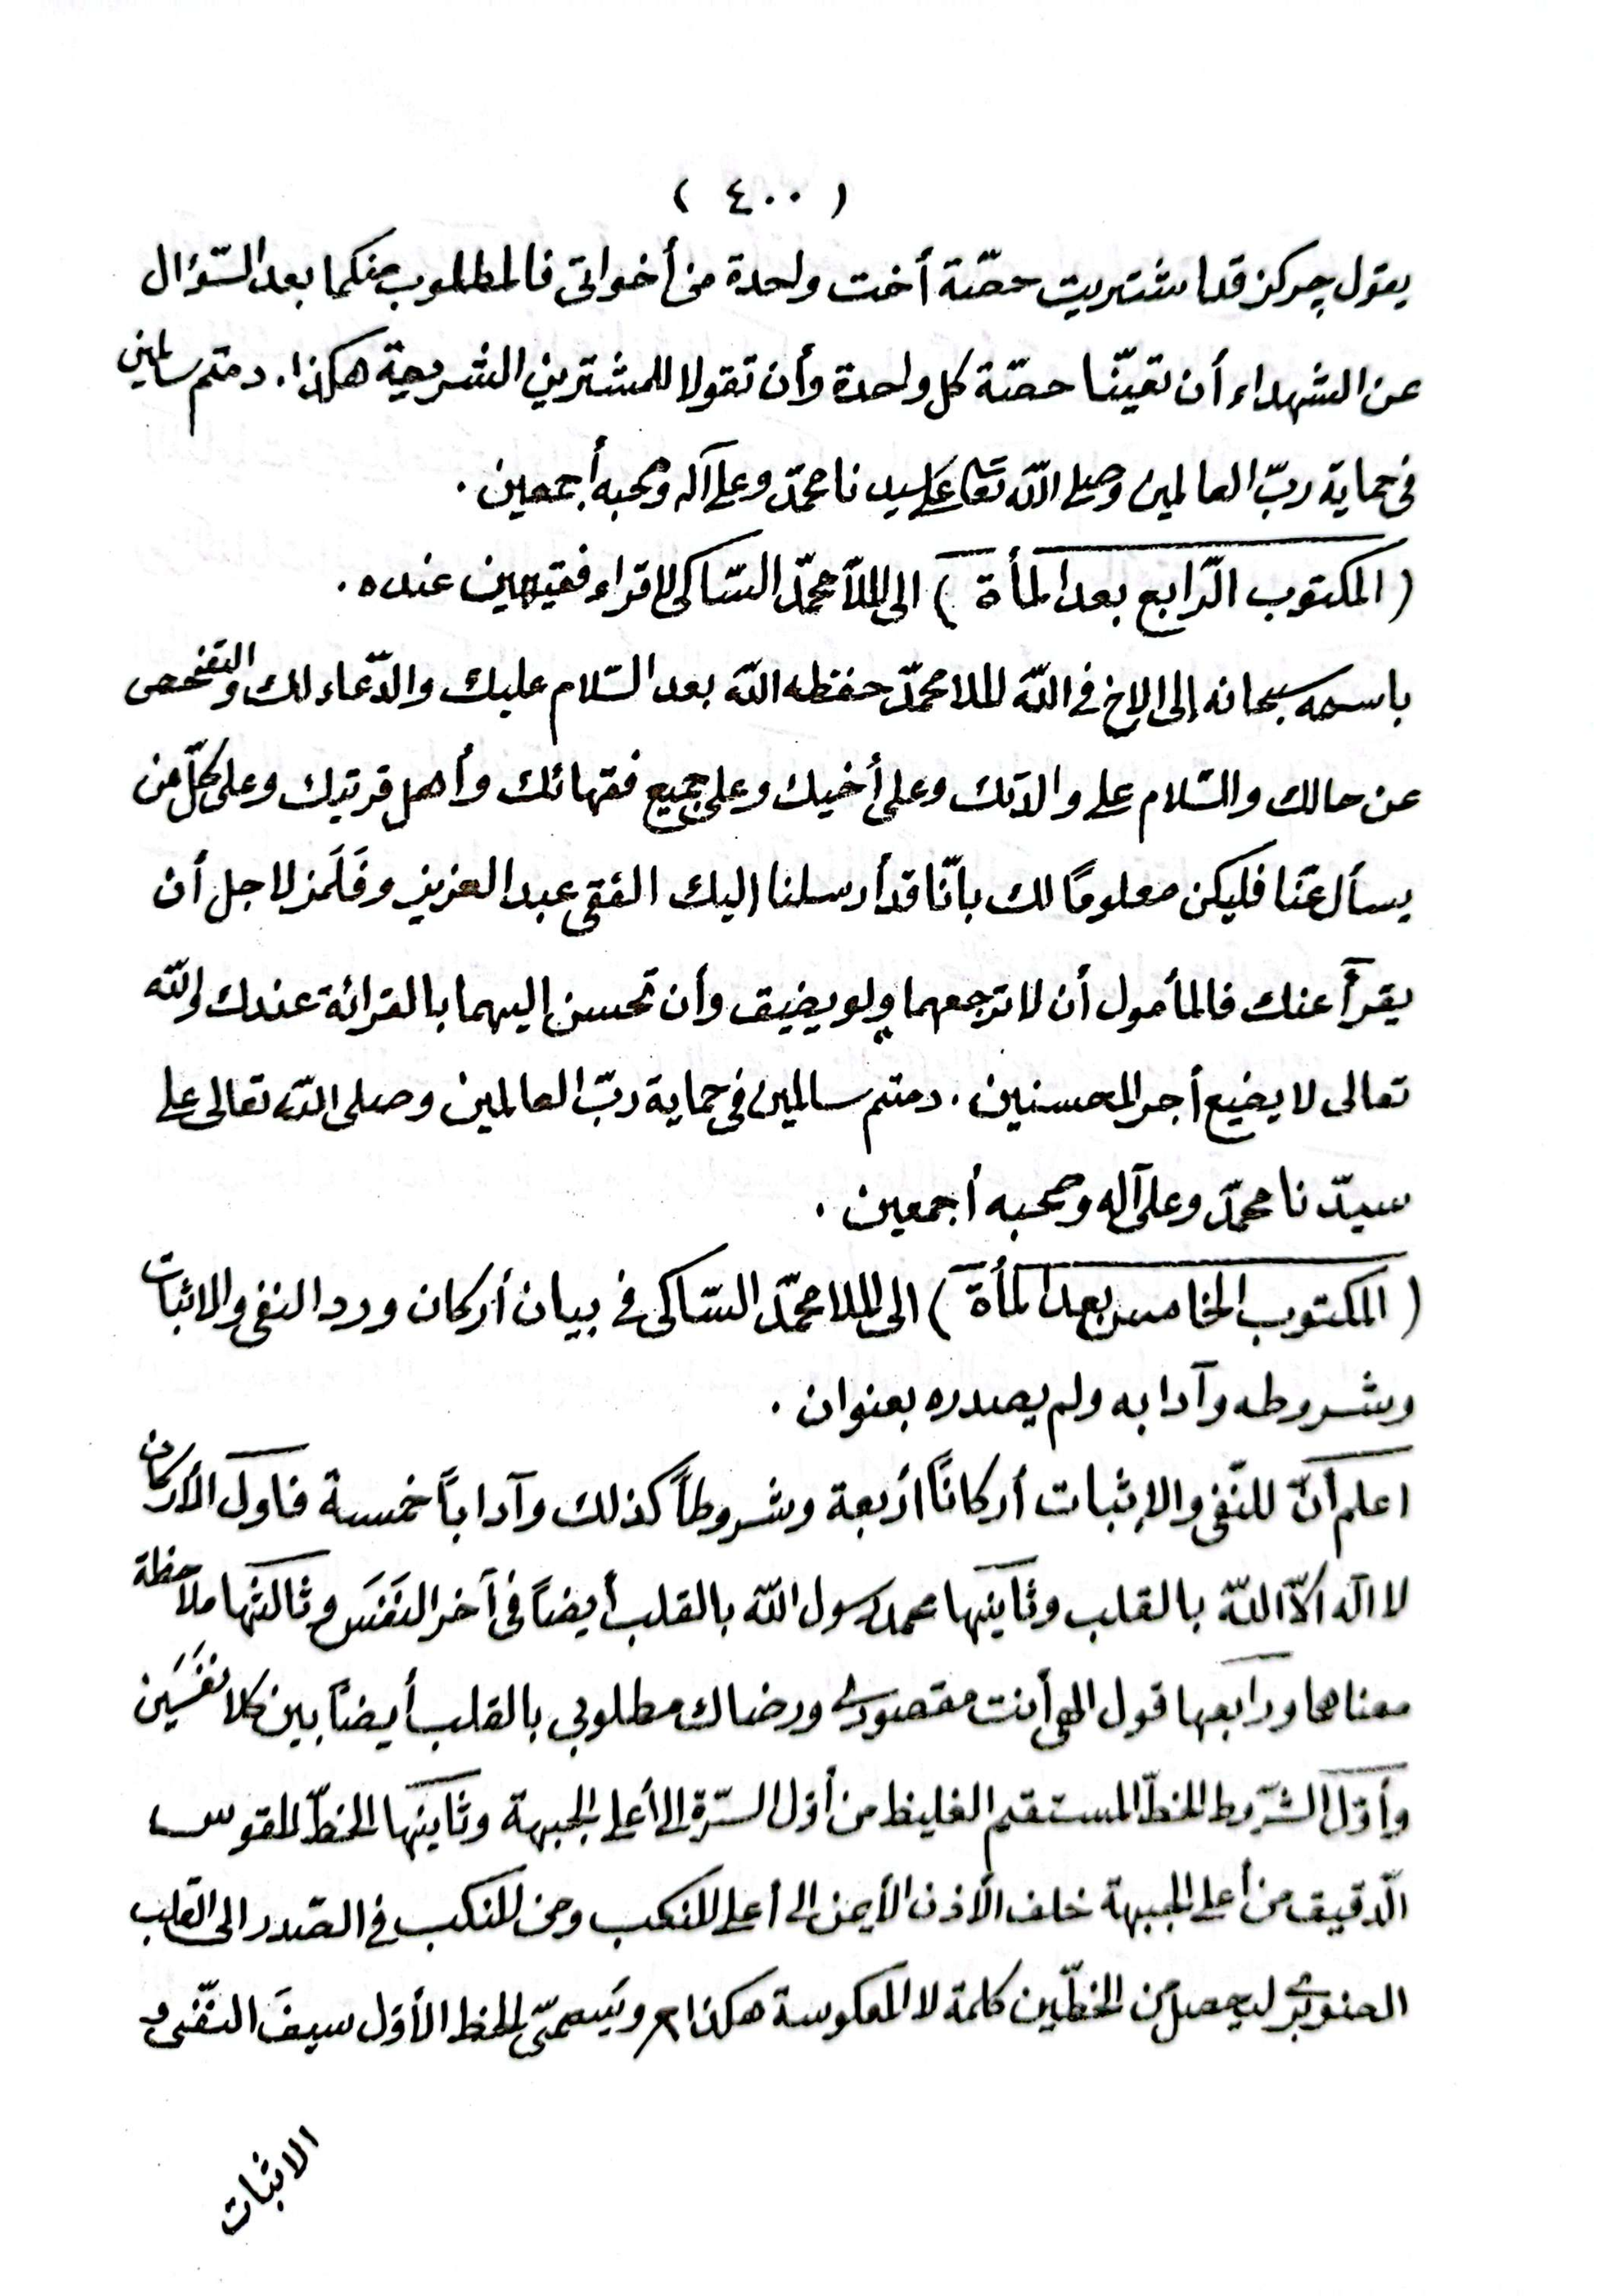 ( ٤٠٠ )
يقول چركز قد اشتريت حصّة أخت واحدة من أخواتى فالمطلوب منكما بعد السّؤال
عن الشهداء أن تعيّنا حصّة كل واحدة وأن تقولا للمشترين الشريعة هكذا . دمتم سالمين
فى حماية ربّ العالمين وصلى اللّه تعالى على سيدنا محمّد وعلى آله وصحبه أجمعين .
( المكتوب الرّابع بعد المأة ) الى الملاّ محمّد السّاكى لاقراء فقيهين عنده .
باسمه سبحانه إلى الاخ في اللّه الملا محمّد حفظه اللّه بعد السّلام عليك والدّعاء لك والتّفحص
عن حالك والسّلام على والدتك وعلى أخيك وعلى جميع فقهائك وأهل قريتك وعلى كلّ من
يسأل عنّا فليكن معلومًا لك بانّا قد أرسلنا اليك الفقى عبد العزيز وفَلَمز لاجل أن
يقرآ عنك فالمأمول أن لا ترجعهما ولو بضيق وأن تحسن إليهما بالقرائة عندك واللّه
تعالى لا يضيع أجر المحسنين . دمتم سالمين فى حماية ربّ العالمين وصلى اللّه تعالى على
سيدّنا محمّد وعلى آله وصحبه أجمعين .
( المكتوب الخامس بعد المأة ) الى الملا محمّد السّاكى فى بيان أركان ورد النفى والاثبات
وشروطه وآدابه ولم يصدره بعنوان .
اعلم أنّ للنّفى والإثبات أركاناً أربعة وشروطاً كذلك وآداباً خمسة فاول الأركان
لا اله الاّ اللّه بالقلب وثانيها محمد رسول اللّه بالقلب أيضاً فى آخر النَفَس وثالثها ملاحظة
معناهما ورابعها قول الهى أنت مقصودى ورضاك مطلوبي بالقلب أيضاً بين كلا نفَسَين
وأوّل الشّروط الخطّ المستقيم الغليظ من أوّل السّرّة إلى أعلى الجبهة وثانيها الخطّ المقوس
الدّقيق من أعلى الجبهة خلف الأذن الأيمن الى أعلى المنكب ومن المنكب فى الصّدر الى القلب
الصنوبرى ليحصل من الخطّين كلمة لا المعكوسة هكذا ويسمىّ الخط الأوّل سيفَ النّفى و
الاثبات